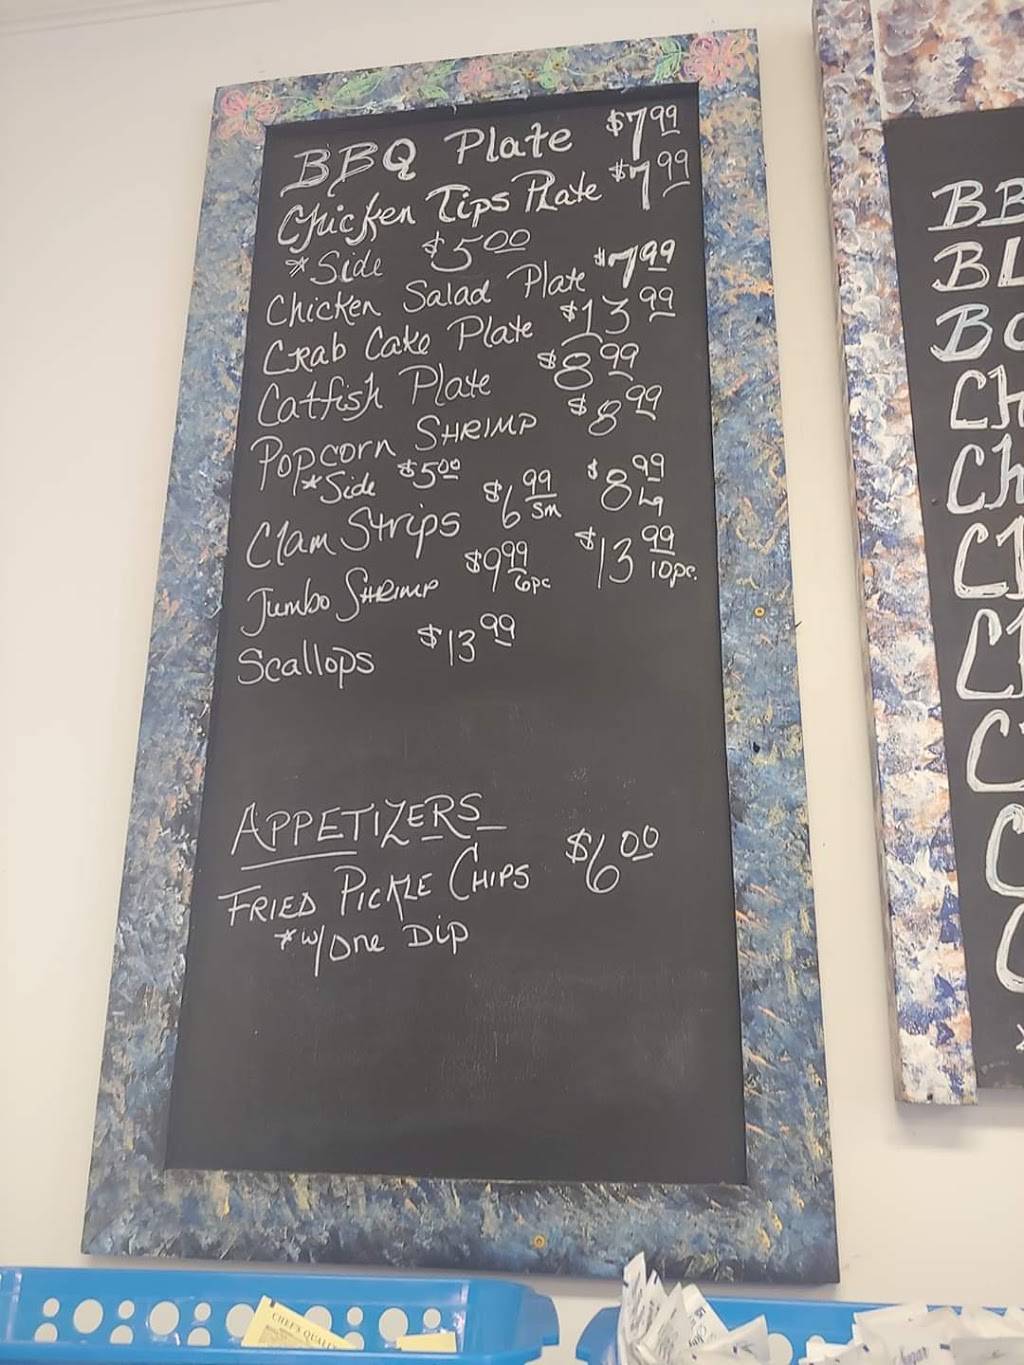 BBQ Plate $7.99
Chicken Tips Plate $7.99
*Side $5.00
Chicken Salad Plate $7.99
Crab Cake Plate $13.99
Catfish Plate $8.99
Popcorn SHRIMP $8.99
*Side $5.00
Clam Strips $6.99 sm $8.99 Lg
Jumbo SHRIMP $9.99 6pc $13.99 10pc.
Scallops $13.99
APPETIZERS
FRIED PICKLE CHIPS $6.00
*w/One DIP
BB
BL
Ch
Ch
CHEF'S